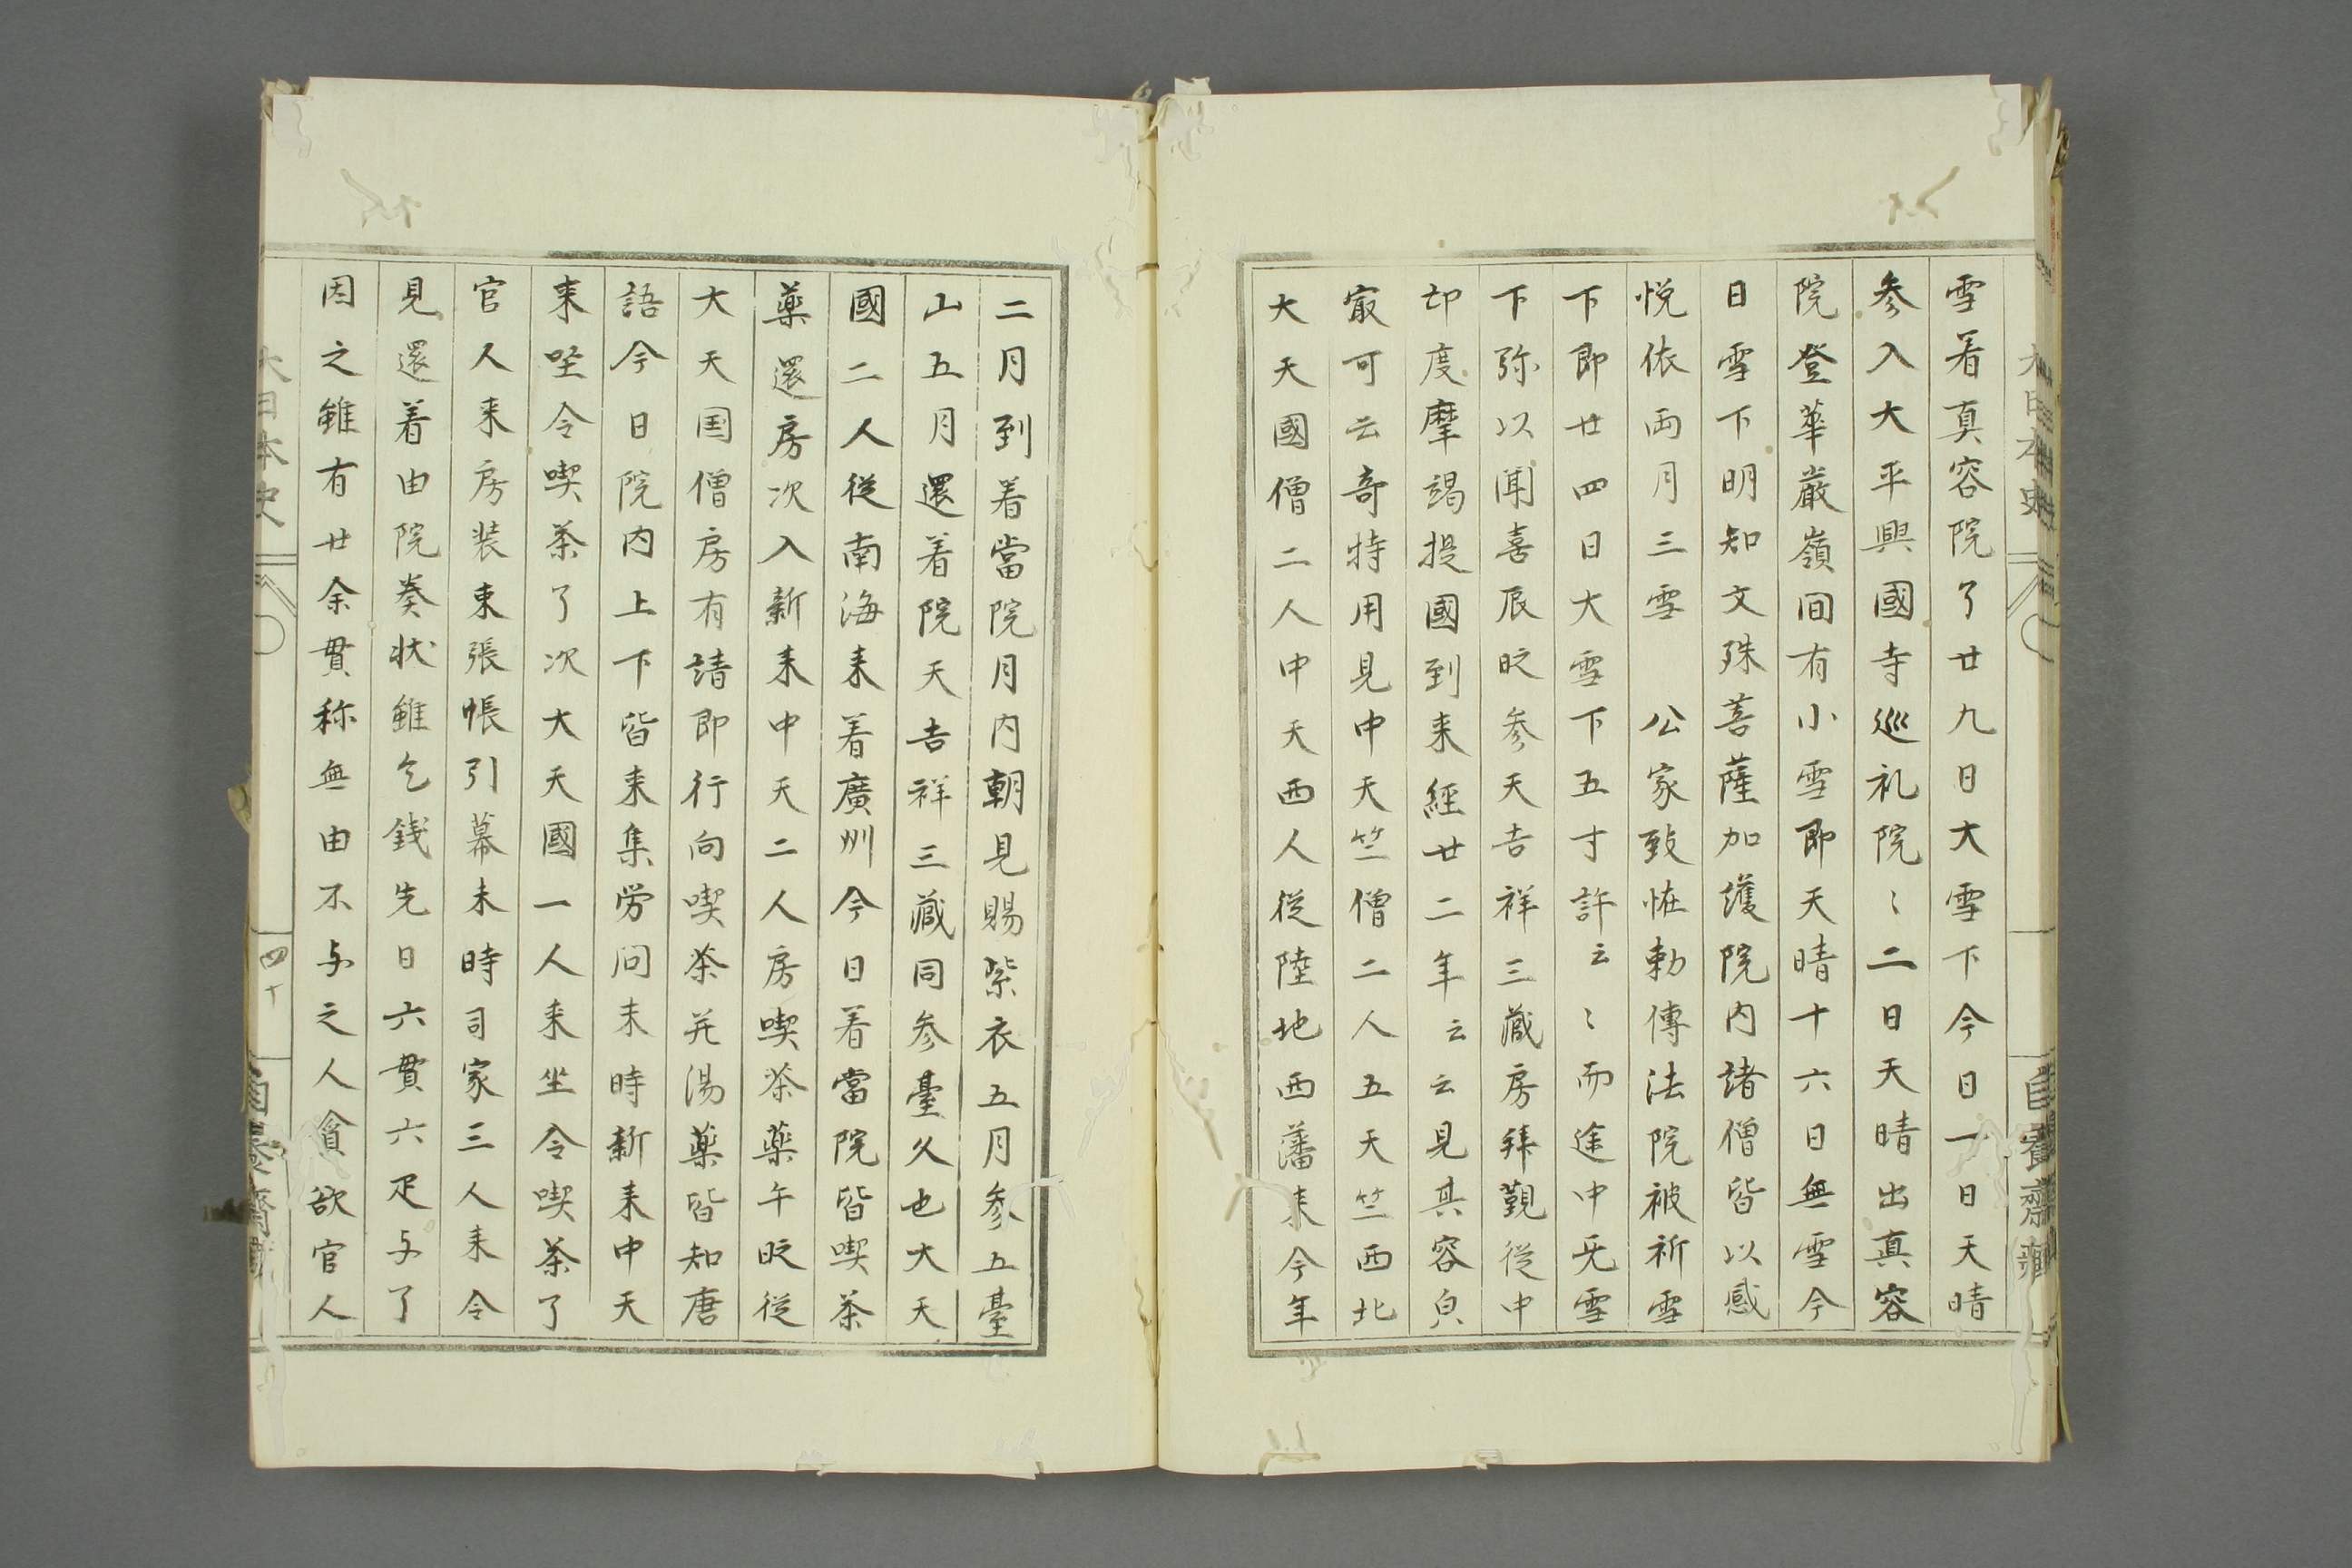 雪着真容院了廿九日大雪下今日一日天晴
参入大平興國寺巡礼院〻二日天晴出真容
院登華嚴嶺間有小雪即天晴十六日無雪今
日雪下明知文殊菩薩加護院内諸僧皆以感
悦依両月三雪　公家致恠勅傳法院被祈雪
下即廿四日大雪下五寸許云〻而途中无雪
下弥以聞喜辰時参天吉祥三蔵房拜覲從中
印度摩竭提國到来經廿二年云云見其容皃
㝡可云奇特用見中天竺僧二人五天竺西北
大天國僧二人中天西人從陸地西藩来今年
二月到着當院月内朝見賜紫衣五月参五臺
山五月還着院天吉祥三蔵同参臺久也大天
國二人從南海来着廣州今日着當院皆喫茶
藥還房次入新来中天二人房喫茶藥午時從
大天国僧房有請即行向喫茶并湯藥皆知唐
語今日院内上下皆来集労问未時新来中天
来坐令喫茶了次大天國一人来坐令喫茶了
官人来房装束張帳引幕未時司家三人来令
見還着由院奏状雖乞銭先日六貫六疋与了
因之雖有廿余貫称無由不与之人貪欲官人
大日本史
四十